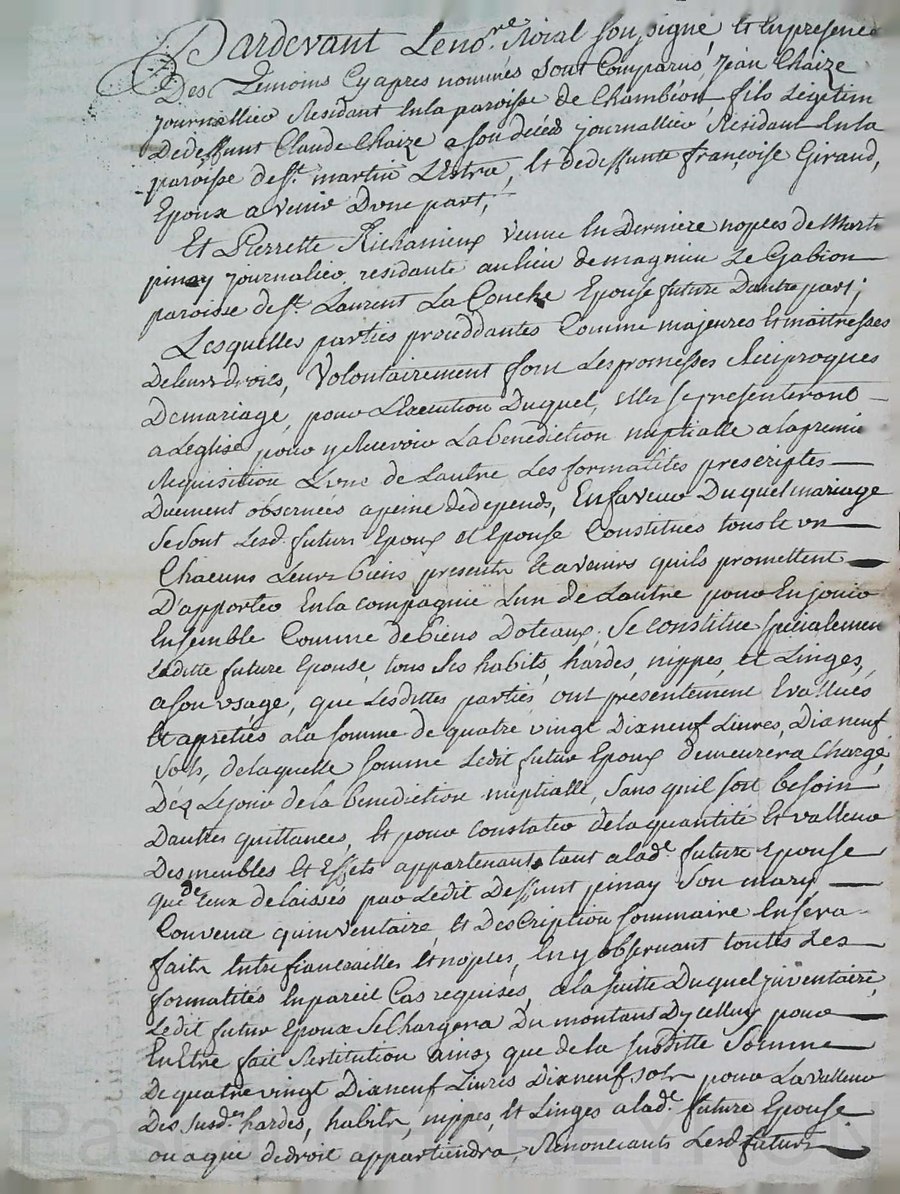 Pardevant Leno.re Roial soussigné, et En presence
Des Temoins Cyapres nommés sont Comparus, jean Chaize
journallier Residant En la paroisse de Chambéon fils Legitim
Dedeffunt Claude Chaize a son décéd journallier Residant En la
paroisse de st. martin L'Estra, Et dedeffunte françoise Giraud,
Epoux avenir Dune part,
Et Pierrette Richanieux veuve En Derniere nopces de Mart
pinay journalier residante au lieu de magnieu Le Gabion
paroisse de st. Laurent La Conche Epouse future Dautre part;
Lesquelles parties procéddantes Comme majeures Et maitresses
De leurs droits, Volontairement font Les promesses Réciproques
De mariage, pour L'Execution Duquel, elles se presenteront
a L'eglise pour y Recevoir La bénédiction nuptialle a la premie
Requisition L'une de Lautre Les formalités prescriptes
Duement observées a peine de depends, En faveur Duquel mariage
se sont Lesd. futurs Epoux et Epouse Constitués tous le un
Chacuns Leurs biens presents Et avenirs quils promettent
D'apporter En la compagnie Lun de Lautre pour En jouir
Ensemble Comme de biens Doteaux. Se constitue specialemen
Laditte future Epouse, tous ses habits, hardes, nippes, et Linges,
a son usage, que Lesdittes parties ont présentement Evallués
Et apretiés a la somme de quatre vingt Dixneuf Livres, Dixneuf
sols, de laquelle somme Ledit futur Epoux demeurera Chargé
Dez Le jour de la bénédiction nuptialle, sans quil soit besoin
Dautres quittances, Et pour constater de la quantité et valleur
Des meubles Et Effets appartenants tant a lad.e future Epouse
que de ceux delaissés par Ledit Deffunt pinay Son mary
Convenu quinventaire, et Description sommaire En sera
faite Entre fiancailles Et nopces, En y observant toutes Les
formalités En pareil Cas requises, a la suitte Duquel jnventaire,
Ledit futur Epoux se Chargera Du montant Dycelluy pour
En Etre fait Restitution ainsy que de la susditte Somme
De quatre vingt Dixneuf Livres Dixneuf sols pour La valleur
Des susd.es hardes, habits, nippes, Et Linges a lad.e future Epouse
ou a qui de droit appartiendra, Renonceants Lesd. futurs